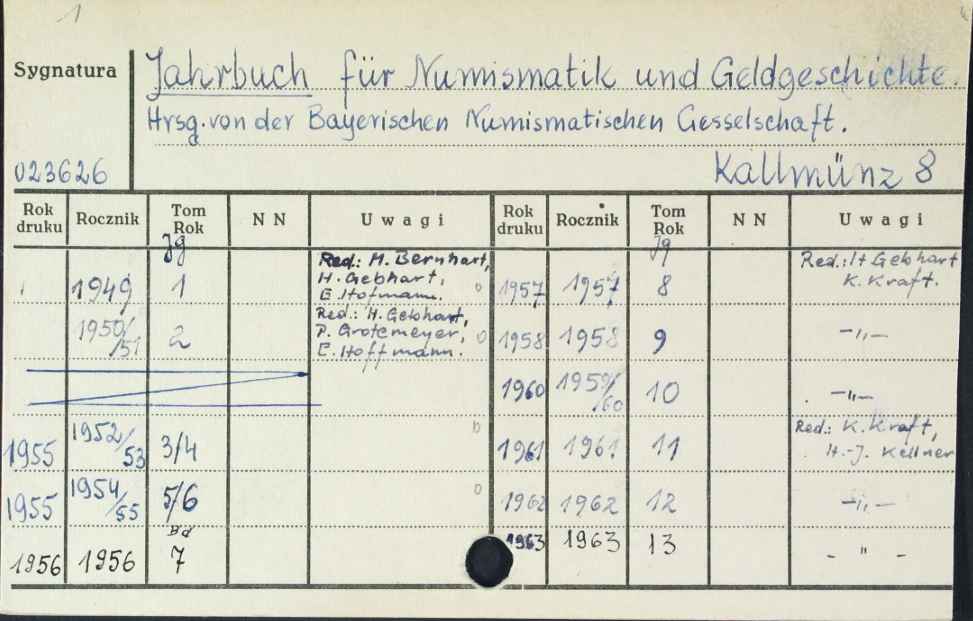 1
Sygnatura
Jahrbuch für Numismatik und Geldgeschichte.
Hrsg. von der Bayerischen Numismatischen Gesselschaft.
023626
Kallmünz 8
Rok druku Rocznik Tom Rok NN Uwagi Rok druku Rocznik Tom Rok NN Uwagi
Jg Jg
1949 1 Red.: M. Bernhart, H. Gebhart, E. Hofmann.
1950/51 2 Red.: H. Gebhart, P. Grotemeyer, E. Hoffmann.
1955 1952/53 3/4
1955 1954/55 5/6
Bd
1956 1956 7
1957 1957 8 Red.: H Gebhart K. Kraft.
1958 1958 9 —„—
1960 1959/60 10 —„—
1961 1961 11 Red.: K. Kraft, H.-J. Kellner
1962 1962 12 —„—
1963 1963 13 - " -